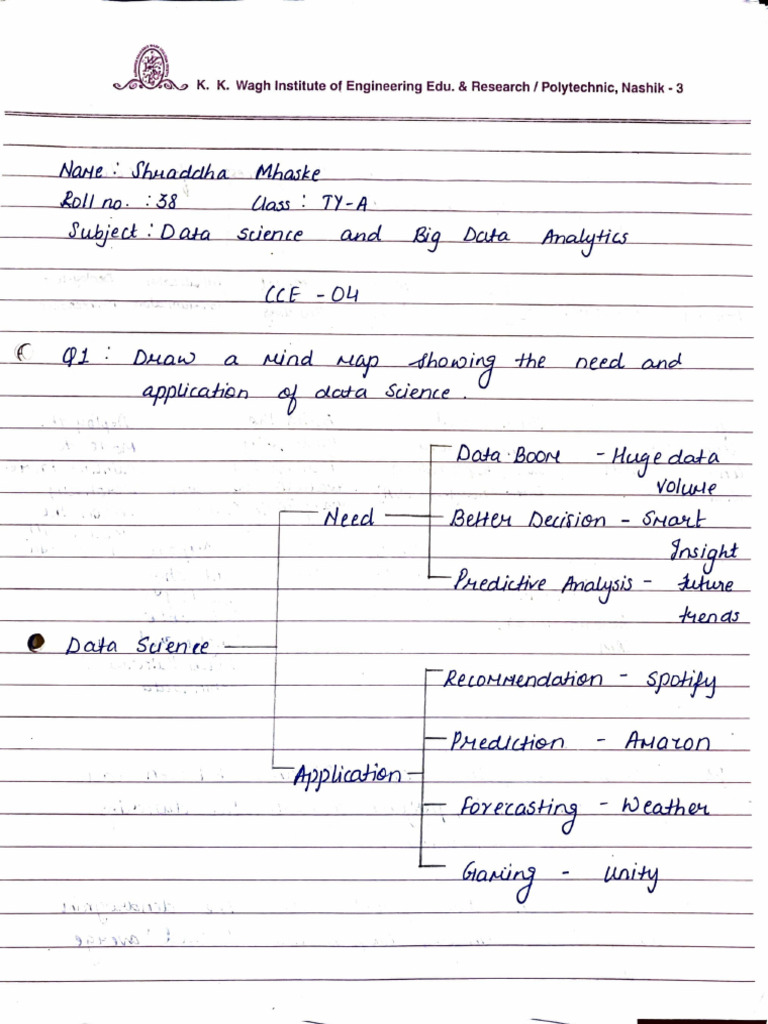 K. K. Wagh Institute of Engineering Edu. & Research / Polytechnic, Nashik - 3
Name : Shraddha Mhaske
Roll no. : 38 Class : TY-A
Subject : Data science and Big Data Analytics
CCE - 04
Q1 : Draw a mind map showing the need and
application of data science.
Data Boom - Huge data
volume
Need
Better Decision - Smart
Insight
Predictive Analysis - future
trends
Data Science
Recommendation - Spotify
Prediction - Amazon
Application
Forecasting - Weather
Gaming - Unity